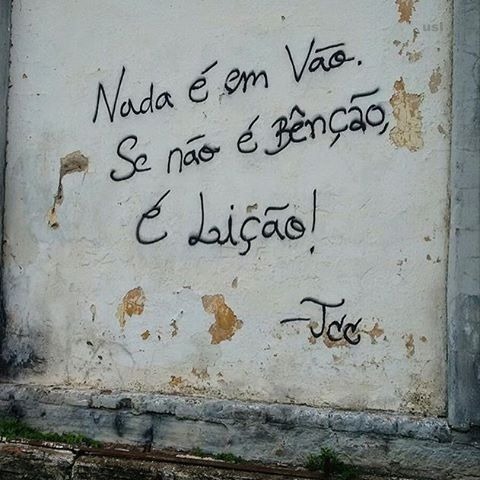 usl
Nada é em Vão.
Se não é Bênção,
é Lição!
-Jcc